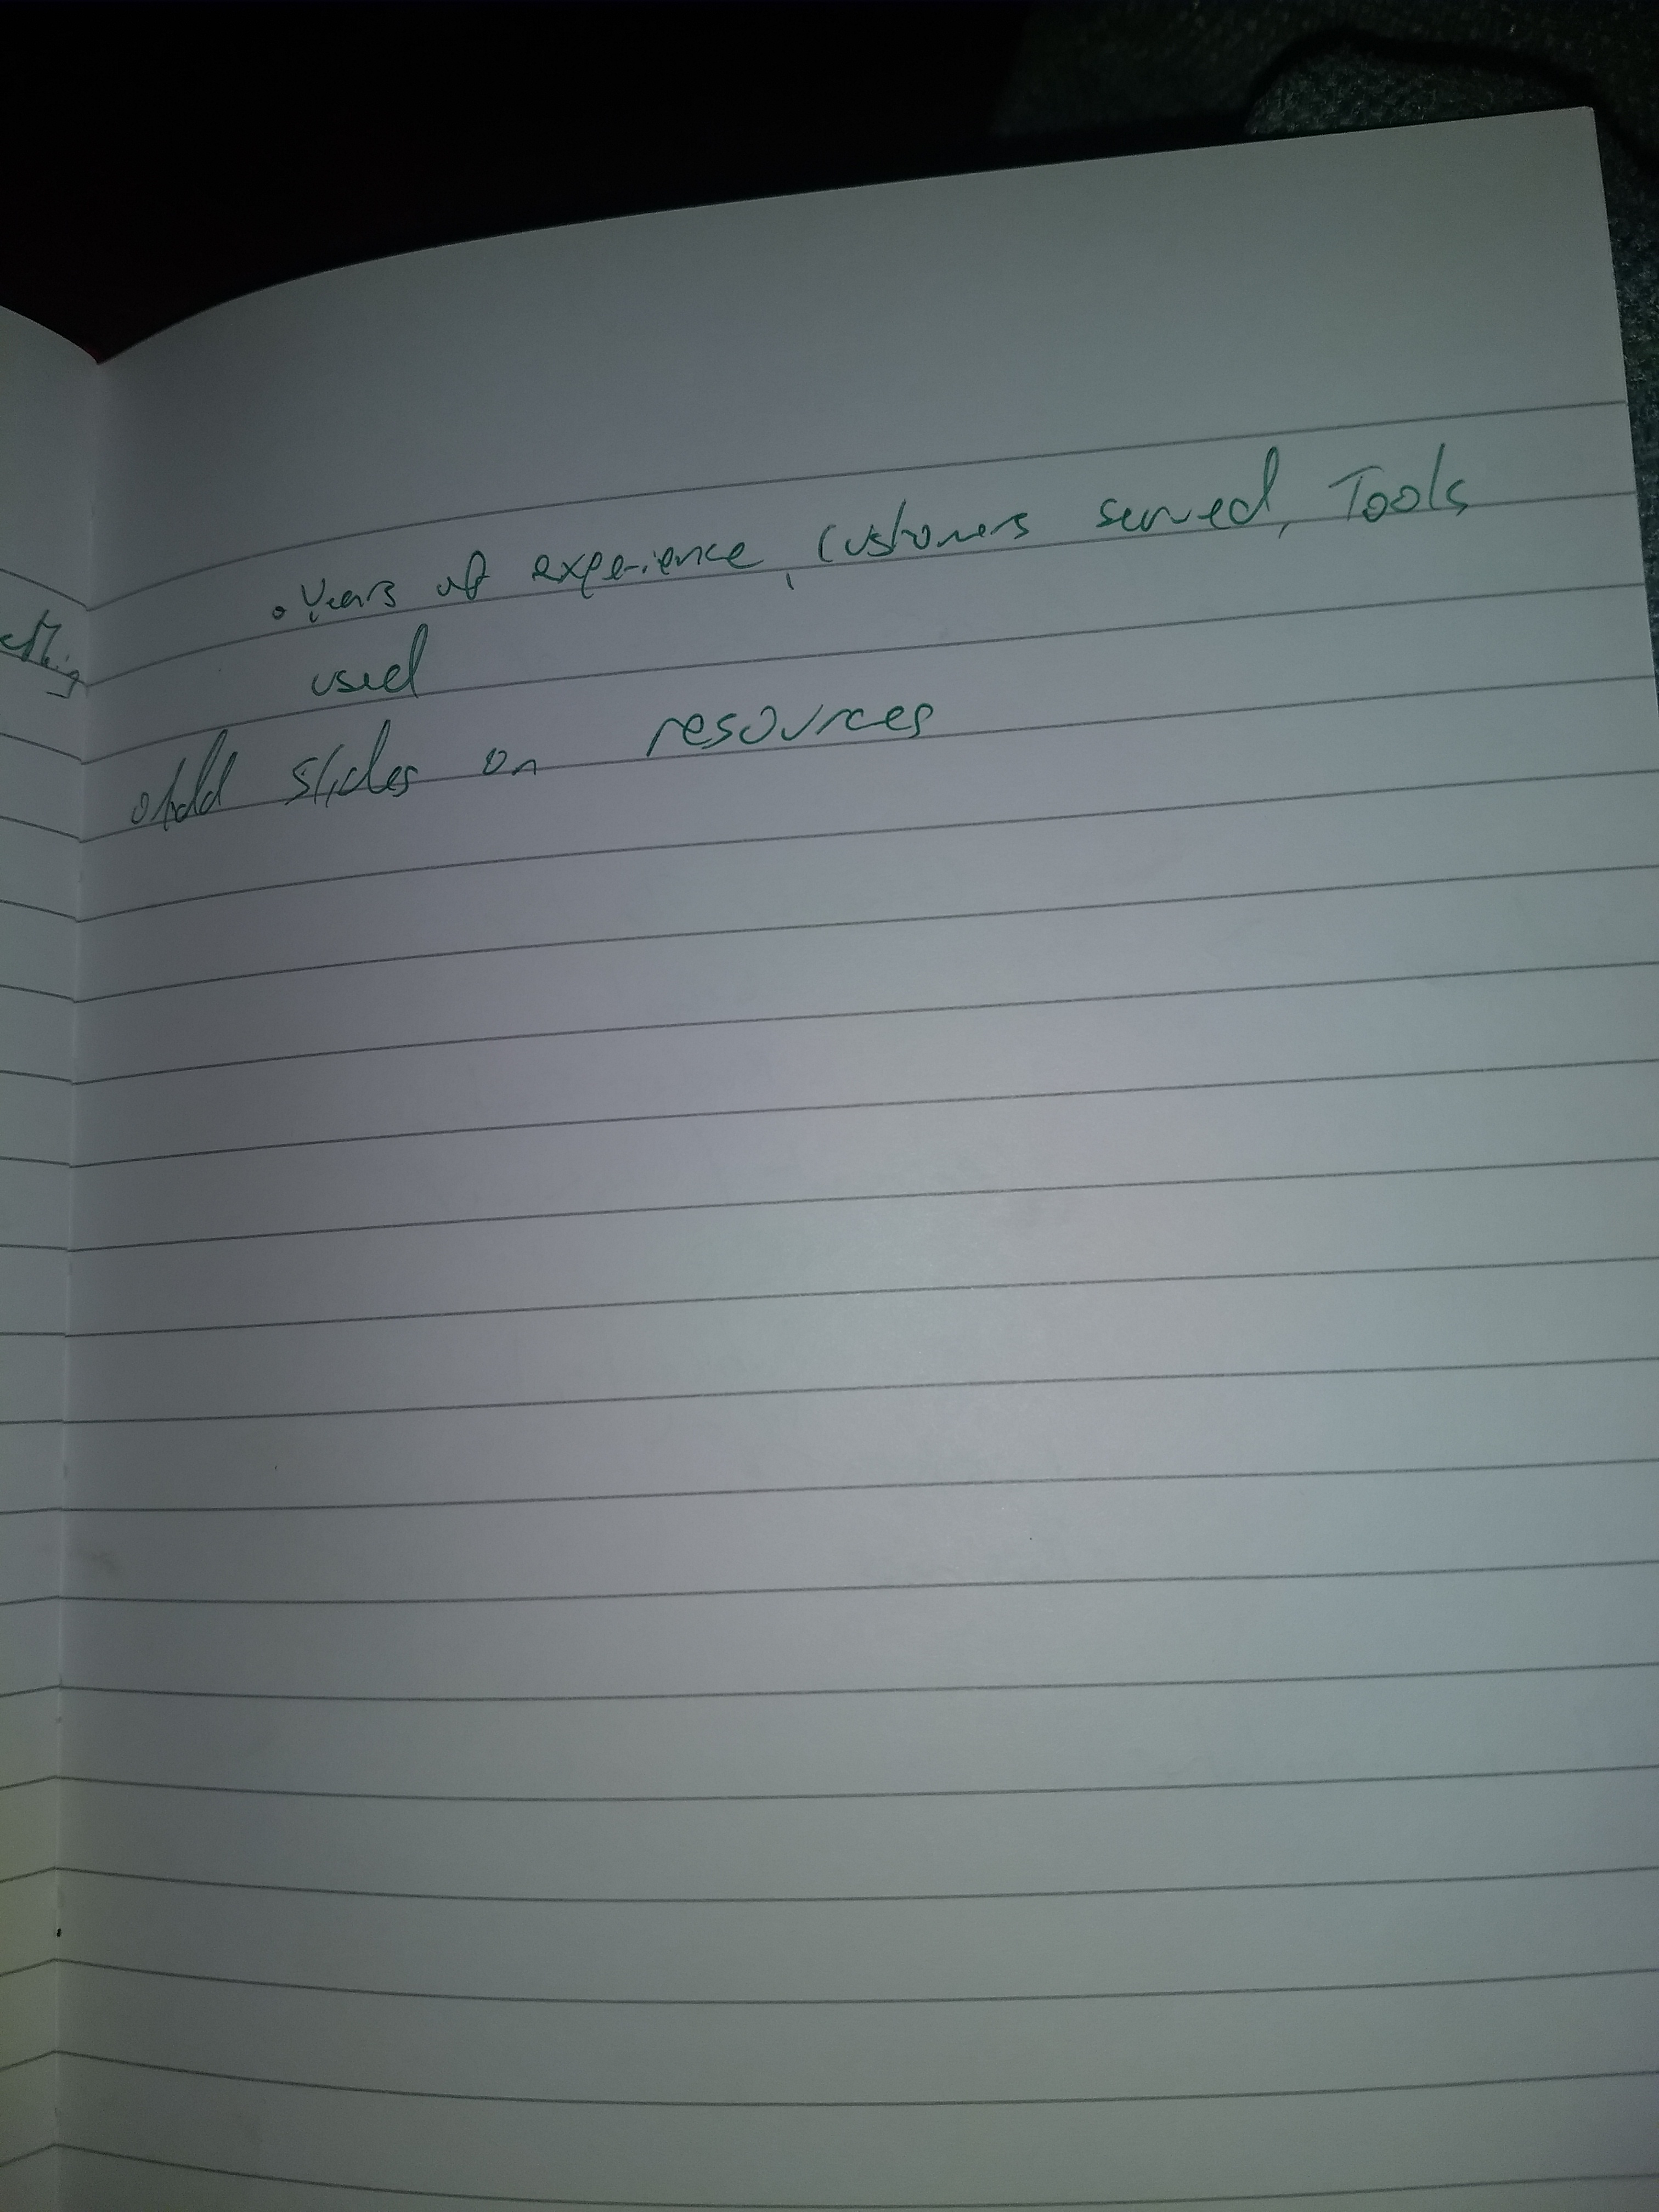 • Years of experience, Customers served, Tools
used
• Add slides on resources